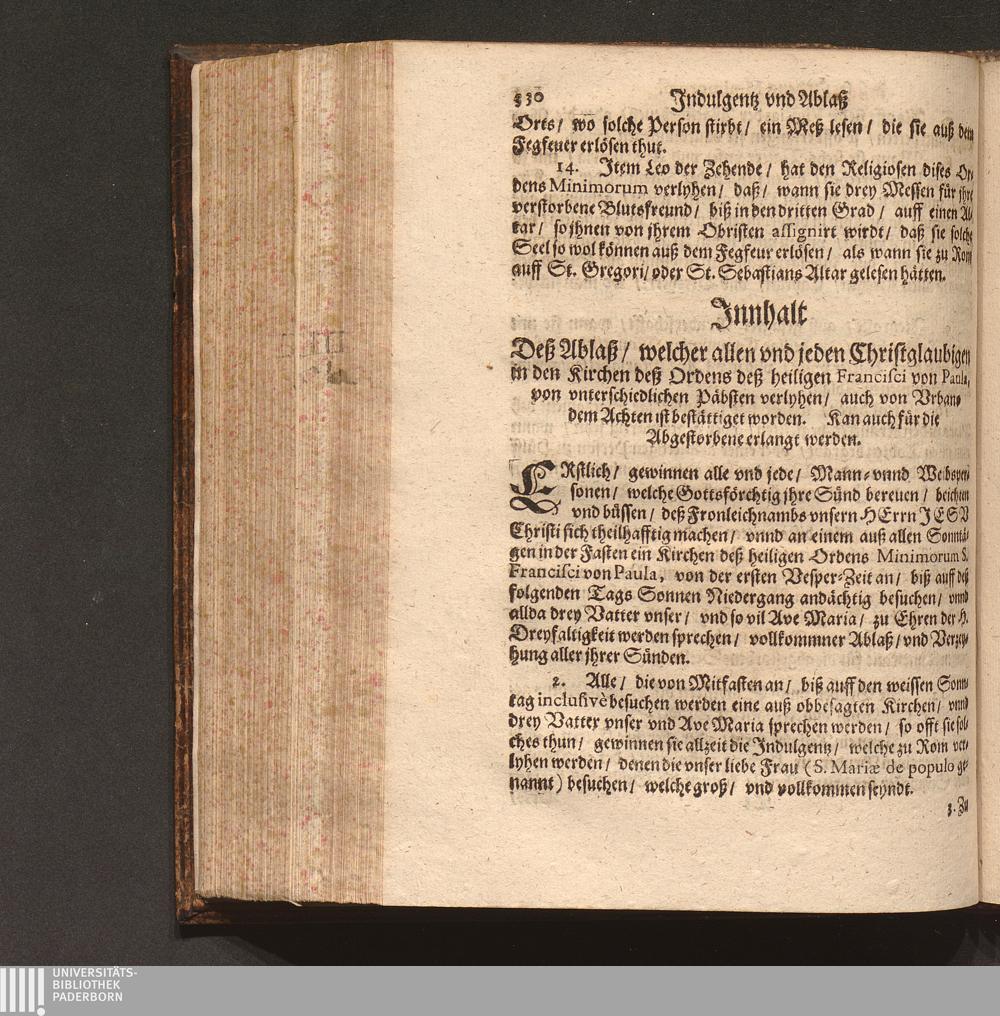 530 Indulgentz vnd Ablaß
Orts / wo solche Person stirbt / ein Meß lesen / die sie auß dem
Fegfeuer erlösen thut.
14. Item Leo der Zehende / hat den Religiosen dises Or-
dens Minimorum verlyhen / daß / wann sie drey Messen für jhre
verstorbene Blutsfreund / biß in den dritten Grad / auff einen Al-
tar / so jhnen von jhrem Obristen assignirt wirdt / daß sie solche
Seel so wol können auß dem Fegfeur erlösen / als wann sie zu Rom
auff St. Gregori / oder St. Sebastians Altar gelesen hätten.
Innhalt
Deß Ablaß / welcher allen vnd jeden Christglaubigen
in den Kirchen deß Ordens deß heiligen Francisci von Paula,
von vnterschiedlichen Päbsten verlyhen / auch von Vrban-
dem Achten ist bestättiget worden. Kan auch für die
Abgestorbene erlangt werden.
ERstlich / gewinnen alle vnd jede / Mann- vnnd Weibsper-
sonen / welche Gottsförchtig jhre Sünd bereuen / beichten
vnd büssen / deß Fronleichnambs vnsern HErrn JESV
Christi sich theilhafftig machen / vnnd an einem auß allen Sonntä-
gen in der Fasten ein Kirchen deß heiligen Ordens Minimorum S.
Francisci von Paula, von der ersten Vesper-Zeit an / biß auff deß
folgenden Tags Sonnen Niedergang andächtig besuchen / vnnd
allda drey Vatter vnser / vnd so vil Ave Maria / zu Ehren der H.
Dreyfaltigkeit werden sprechen / vollkommner Ablaß / vnd Verzey-
hung aller jhrer Sünden.
2. Alle / die von Mitfasten an / biß auff den weissen Sonn-
tag inclusivè besuchen werden eine auß obbesagten Kirchen / vnnd
drey Vatter vnser vnd Ave Maria sprechen werden / so offt sie sol-
ches thun / gewinnen sie allzeit die Indulgentz / welche zu Rom ver-
lyhen werden / denen die vnser liebe Frau (S. Mariæ de populo ge-
nannt) besuchen / welche groß / vnd vollkommen seyndt.
3. Zu
UNIVERSITÄTS-
BIBLIOTHEK
PADERBORN